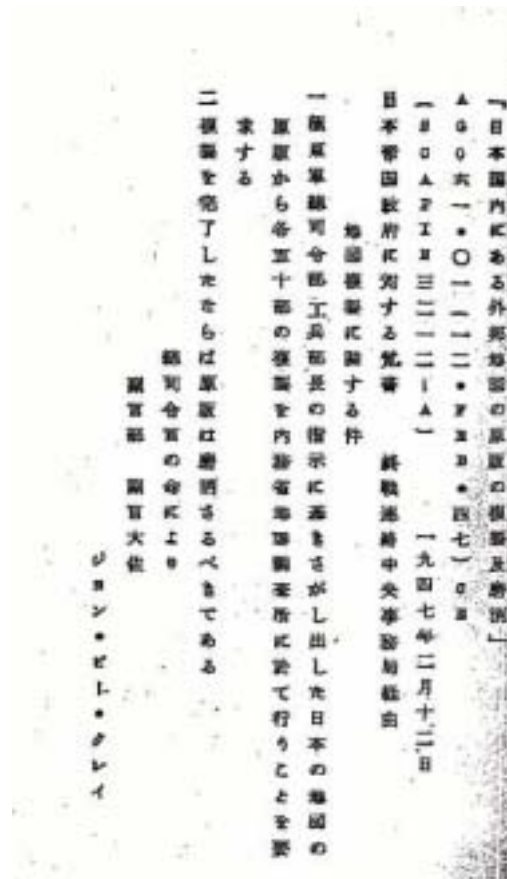 「日本国内にある外邦地図の原版の複製及磨消」
AG〇六一・〇一(一二・FEB・四七)GE
(SCAPIN三二一二ーA) 一九四七年二月十二日
日本帝国政府に対する覚書 終戦連絡中央事務局経由
地図複製に関する件
一極東軍総司令部工兵部長の指示に基きさがし出した日本の地図の
原版から各五十部の複製を内務省地理調査所に於て行うことを要
求する
二複製を完了したならば原版は磨消さるべきである
総司令官の命により
副官部 副官大佐
ジョン・ビー・クレイ